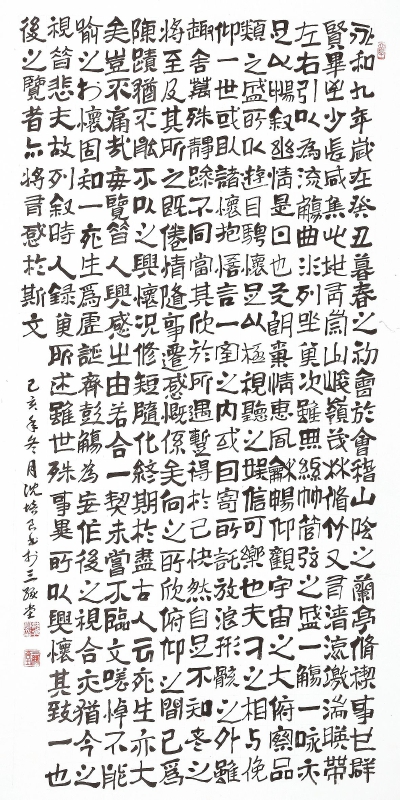 永和九年歲在癸丑暮春之初會於會稽山陰之蘭亭脩禊事也群
賢畢至少長咸集此地有崇山峻嶺茂林脩竹又有清流激湍暎帶
左右引以為流觴曲水列坐其次雖無絲竹管弦之盛一觴一詠亦
足以暢叙幽情是日也天朗氣清惠風和暢仰觀宇宙之大俯察品
類之盛所以遊目騁懷足以極視聽之娛信可樂也夫人之相與俛
仰一世或取諸懷抱悟言一室之内或因寄所託放浪形骸之外雖
趣舍萬殊靜躁不同當其欣於所遇蹔得於己快然自足不知老之
將至及其所之既倦情隨事遷感慨係矣向之所欣俯仰之間已為
陳蹟猶不能不以之興懷況修短隨化終期於盡古人云死生亦大
矣豈不痛哉每覽昔人興感之由若合一契未嘗不臨文嗟悼不能
喻之於懷固知一死生為虛誕齊彭觴為妄作後之視今亦猶今之
視昔悲夫故列叙時人録其所述雖世殊事異所以興懷其致一也
後之覽者亦將有感於斯文
己亥年冬月沈培良書於三堂